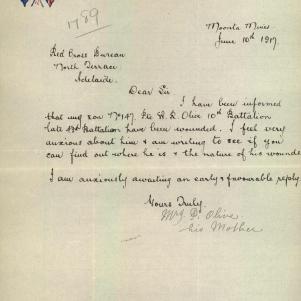 1789
Moonta Mines
June 10th 1917.
Red Cross Bureau
North Terrace
Adelaide.
Dear Sir
I have been informed
that my son No 147. Pte R. R. Olive 10th Battalion
late Battalion have been wounded. I feel very
anxious about him & am writing to see if you
can find out where he is & the nature of his wounds
I am anxiously awaiting an early & favourable reply.
Yours Truly.
Olive
his Mother